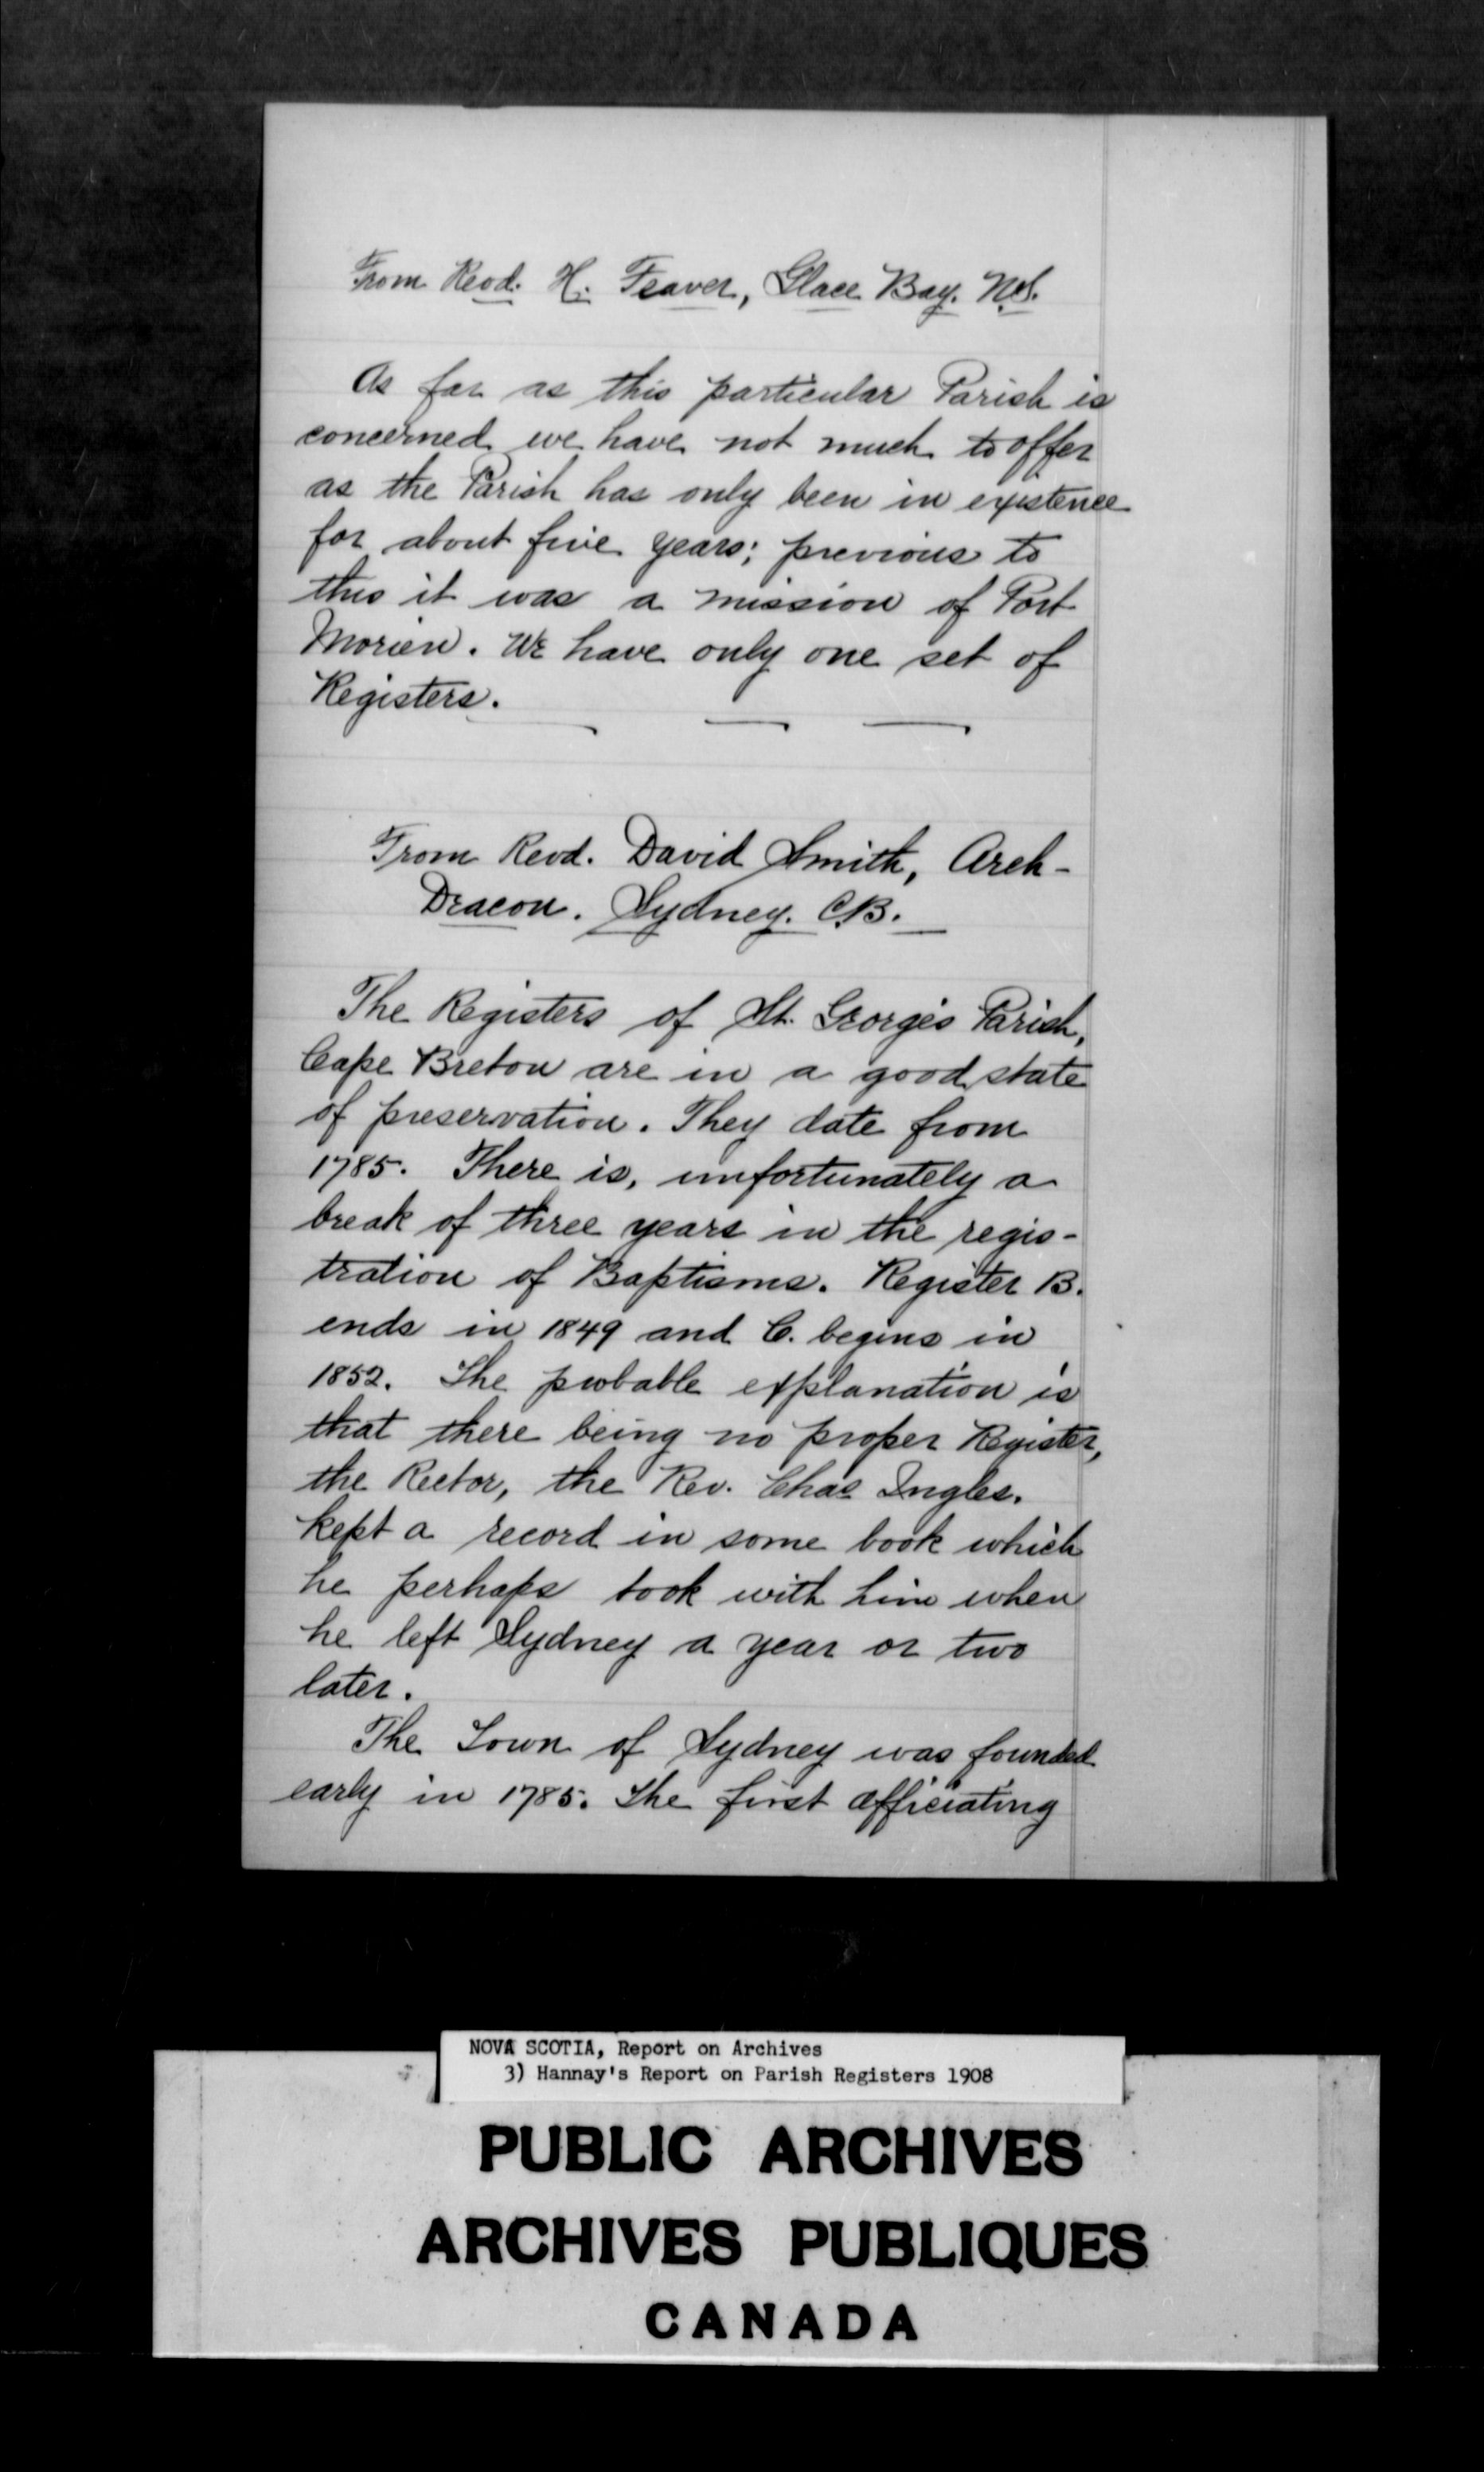 From Revd. H. Feaver, Glace Bay. N.S.
As far as this particular Parish is
concerned we have not much to offer
as the Parish has only been in existence
for about five years; previous to
this it was a mission of Port
Morien. We have only one set of
Registers.
From Revd. David Smith, Arch-
Deacon. Sydney. C.B.
The Registers of St. George's Parish,
Cape Breton are in a good state
of preservation. They date from
1785. There is, unfortunately a
break of three years in the regis-
tration of Baptisms. Register B.
ends in 1849 and C. begins in
1852. The probable explanation is
that there being no proper Register,
the Rector, the Rev. Chas Ingles.
kept a record in some book which
he perhaps took with him when
he left Sydney a year or two
later.
The Town of Sydney was founded
early in 1785. The first officiating
NOVA SCOTIA, Report on Archives
3) Hannay's Report on Parish Registers 1908
PUBLIC ARCHIVES
ARCHIVES PUBLIQUES
CANADA